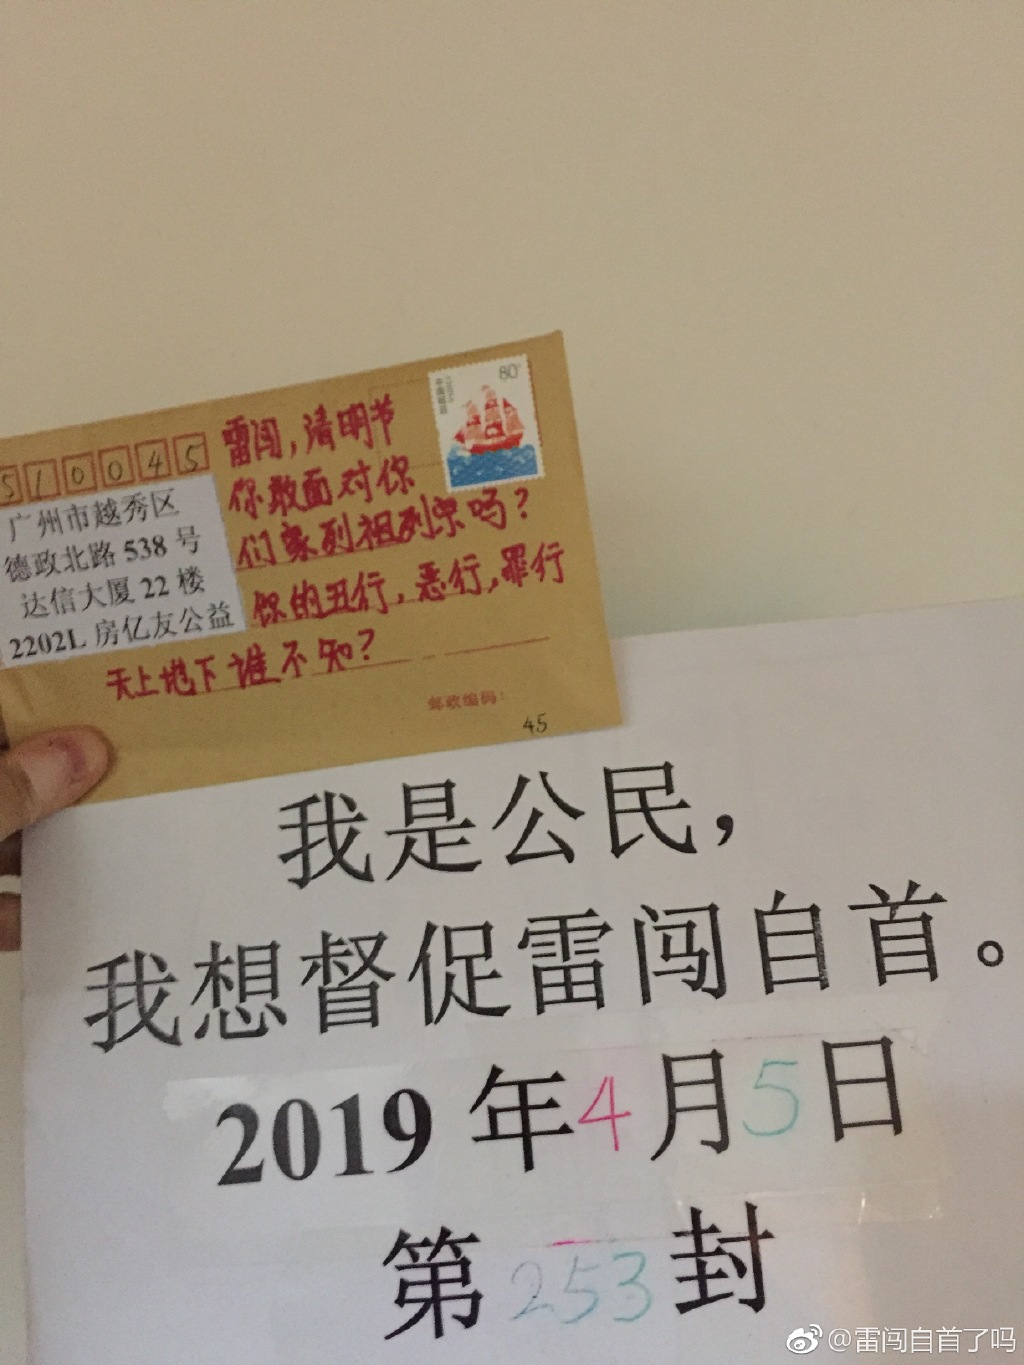 80
510045
广州市越秀区
德政北路 538 号
达信大厦 22 楼
2202L 房亿友公益
雷闯，清明节
你敢面对你
们家列祖列宗吗？
你的丑行，恶行，罪行
天上地下谁不知？
邮政编码：
45
我是公民，
我想督促雷闯自首。
2019 年4月5日
第253封
@雷闯自首了吗